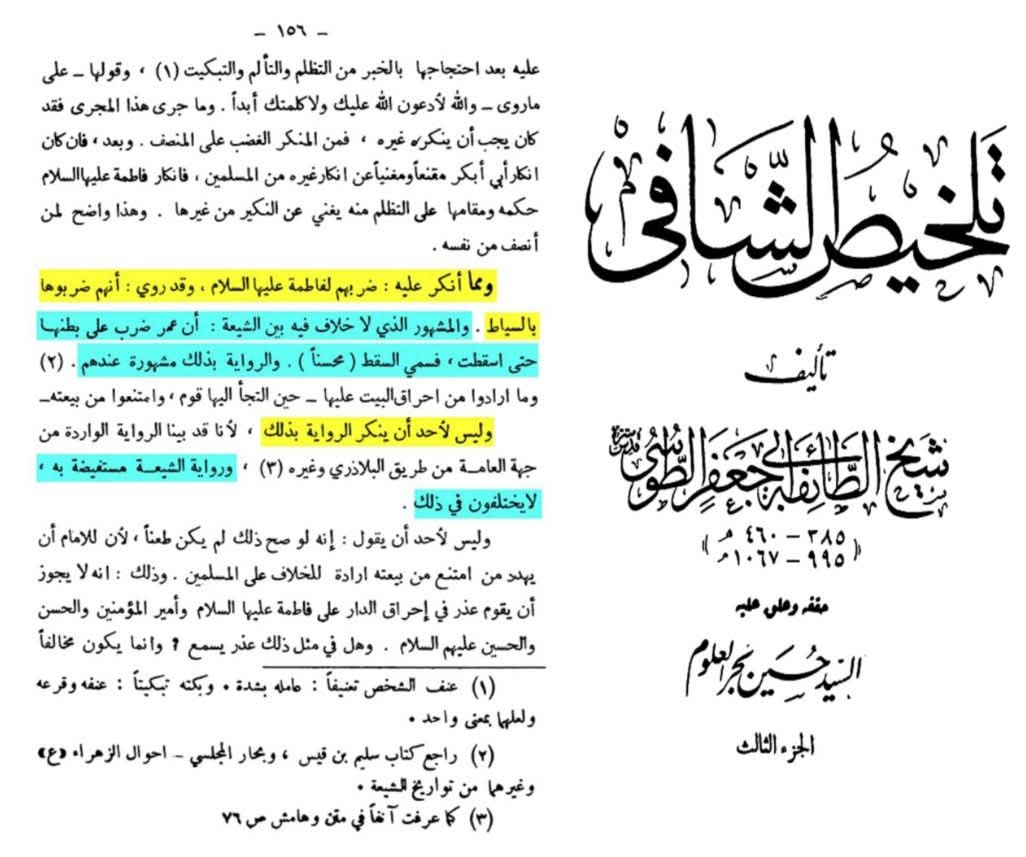 تلخيص الشافي
تأليف
شيخ الطائفة أبي جعفر الطوسي قدس سره
٣٨٥ – ٤٦٠ هـ
٩٩٥ – ١٠٦٧ م
حققه وعلق عليه
السيد حسين بحر العلوم
الجزء الثالث
– ١٥٦ –
عليه بعد احتجاجها بالخبر من التظلم والتألم والتبكيت (١) ، وقولها – على
ماروى – والله لأدعون الله عليك ولاكلمتك أبداً . وما جرى هذا المجرى فقد
كان يجب أن ينكره غيره ، فمن المنكر الغضب على المنصف . وبعد ، فان كان
انكار أبي أبكر مقنعاً ومغنياً عن انكار غيره من المسلمين ، فانكار فاطمة عليها السلام
حكمه ومقامها على التظلم منه يغني عن النكير من غيرها . وهذا واضح لمن
أنصف من نفسه .
ومما أنكر عليه : ضربهم لفاطمة عليها السلام ، وقد روي : أنهم ضربوها
بالسياط . والمشهور الذي لا خلاف فيه بين الشيعة : أن عمر ضرب على بطنها
حتى اسقطت ، فسمي السقط ( محسناً ) . والرواية بذلك مشهورة عندهم . (٢)
وما ارادوا من احراق البيت عليها – حين التجأ اليها قوم ، وامتنعوا من بيعته–
وليس لأحد أن ينكر الرواية بذلك ، لأنا قد بينا الرواية الواردة من
جهة العامة من طريق البلاذري وغيره (٣) ، ورواية الشيعة مستفيضة به ،
لايختلفون في ذلك .
وليس لأحد أن يقول : إنه لو صح ذلك لم يكن طعناً ، لأن للامام أن
يهدد من امتنع من بيعته ارادة للخلاف على المسلمين . وذلك : انه لا يجوز
أن يقوم عذر في إحراق الدار على فاطمة عليها السلام وأمير المؤمنين والحسن
والحسين عليهم السلام . وهل في مثل ذلك عذر يسمع ؟ وانما يكون مخالفاً
(١) عنف الشخص تعنيفاً : عامله بشدة . وبكته تبكيتاً : عنفه وقرعه
ولعلهما بمعنى واحد .
(٢) راجع كتاب سليم بن قيس ، وبحار المجلسي – احوال الزهراء «ع»
وغيرهما من تواريخ الشيعة .
(٣) كما عرفت آنفاً في متن وهامش ص ٧٦